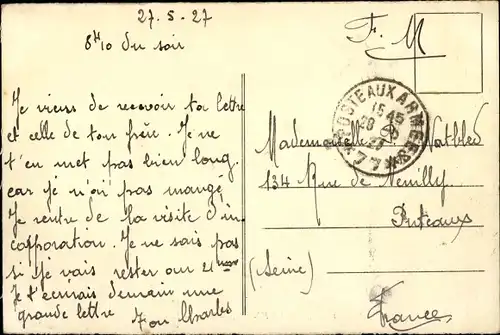 27-5-27
8h10 du soir
Je viens de recevoir ta lettre
et celle de ton frère. Je ne
t'en met pas bien long.
car je n'ai pas mangé
Je rentre de la visite d'in-
corporation. Je ne sais pas
si Je vais rester au 21ème
Je t'écrirais demain une
grande lettre
Ton Charles
F. M
POSTE AUX ARMEES
15 45
28
27
77
Mademoiselle Watbled
134 Rue de Neuilly
Puteaux
(Seine)
France